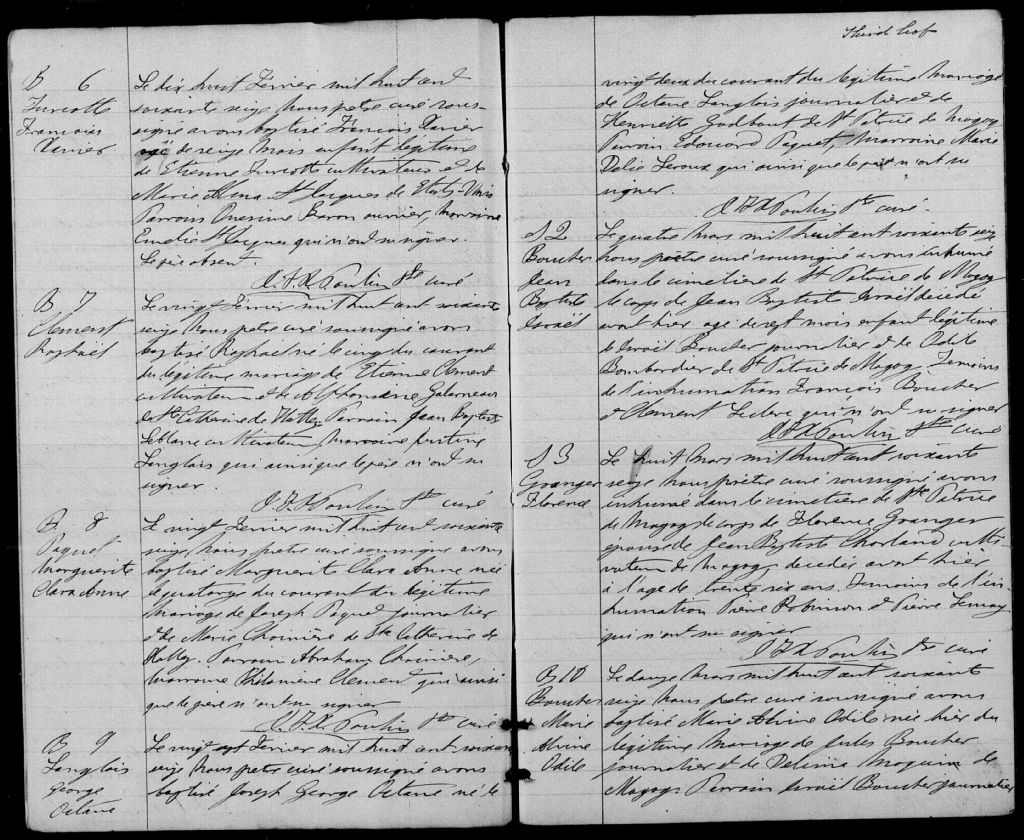 B 6
Turcotte
François
Xavier
Le dix huit Février mil huit cent
soixante seize Nous prêtre curé sous-
signé avons baptisé François Xavier
agé de seize mois enfant légitime
de Etienne Turcotte cultivateur et de
Marie Alma St Jacques de Etats-Unis
Parrain Onesime Baron ouvrier, Marraine
Emelie St Jacques qui n'ont su signer.
Le père absent.
J. F. X Poulin Ptre curé
B 7
Clement
Raphael
Le vingt Février mil huit cent soixante
seize Nous prêtre curé soussigné avons
baptisé Raphael né le cinq du courant
du légitime mariage de Etienne Clement
cultivateur et de Alphonsine Galarneau
de Ste Catherine de Hatley Parrain Jean Baptiste
Leblanc cultivateur, Marraine Justine
Langlais qui ainsi que le père n'ont su
signer.
J. F. X Poulin Ptre curé
B 8
Paquet
Marguerite
Clara Anne
Le vingt Février mil huit cent soixante
seize Nous prêtre curé soussigné avons
baptisé Marguerite Clara Anne née
le quatorze du courant du légitime
mariage de Joseph Paquet journalier
et de Marie Choinière de Ste Catherine de
Hatley. Parrain Abraham Choinière,
Marraine Philomène Clement qui ainsi
que le père n'ont su signer
J. F. X Poulin Ptre curé
B 9
Langlois
George
Octave
Le vingt sept Février mil huit cent soixante
seize Nous prêtre curé soussigné avons
baptisé Joseph George Octave né le
Third leaf
vingt deux du courant du légitime mariage
de Octave Langlois journalier et de
Henriette Godbout de St Patrice de Magog
Parrain Edouard Paquet, Marraine Marie
Delie Leroux qui ainsi que le père n'ont su
signer.
J F X Poulin Ptre curé.
S 2
Boucher
Jean
Baptiste
Israël
Le quatre Mars mil huit cent soixante seize
Nous prêtre curé soussigné avons inhumé
dans le cimetière de St Patrice de Magog
le corps de Jean Baptiste Israël décédé
avant hier agé de sept mois enfant légitime
de Israël Boucher journalier et de Odile
Bombardier de St Patrice de Magog. Temoins
de l'inhumation François Boucher
et Clement Leclerc qui n'ont su signer
J F X Poulin Ptre curé
S 3
Granger
Florence
Le huit Mars mil huit cent soixante
seize Nous prêtre curé soussigné avons
inhumé dans le cimetière de St Patrice
de Magog le corps de Florence Granger
épouse de Jean Baptiste Chorland culti-
vateur de Magog décédée avant hier
à l'age de trente six ans. Temoins de l'in-
humation Pierre Robinson et Pierre Lemay
qui n'ont su signer
J F X Poulin Ptre curé
B 10
Boucher
Marie
Alvine
Odile
Le douze Mars mil huit cent soixante
seize Nous prêtre curé soussigné avons
baptisé Marie Alvine Odile née hier du
légitime mariage de Jules Boucher
journalier et de Delima Moquin de
Magog Parrain Israël Boucher journalier